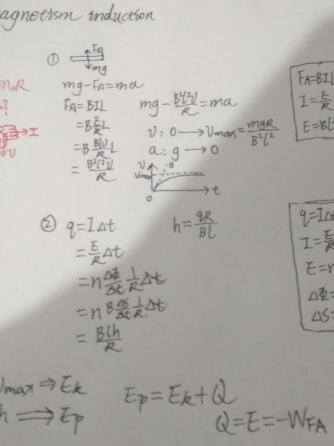 agnetism induction
① FA
mg
mg-FA=ma
FA=BIL
=B\frac{E}{R}L
=B\frac{BLv}{R}L
=\frac{B²l²v}{R}
mg-\frac{B²l²v}{R}=ma
v: 0→Vmax=\frac{mgR}{B²l²}
a: g→0
v
Vmax
0
t
mR
?
→I
FA=BIL
I=\frac{E}{R}
② q=IΔt
=\frac{E}{R}Δt
=n\frac{ΔΦ}{Δt}\frac{1}{R}Δt
=nB\frac{ΔS}{Δt}\frac{1}{R}Δt
=\frac{Blh}{R}
h=\frac{qR}{Bl}
q=IΔ
I=
E=n
ΔΦ=
ΔS=
max⇒Ek
h⇒Ep
Ep=Ek+Q
Q=E=-WFA